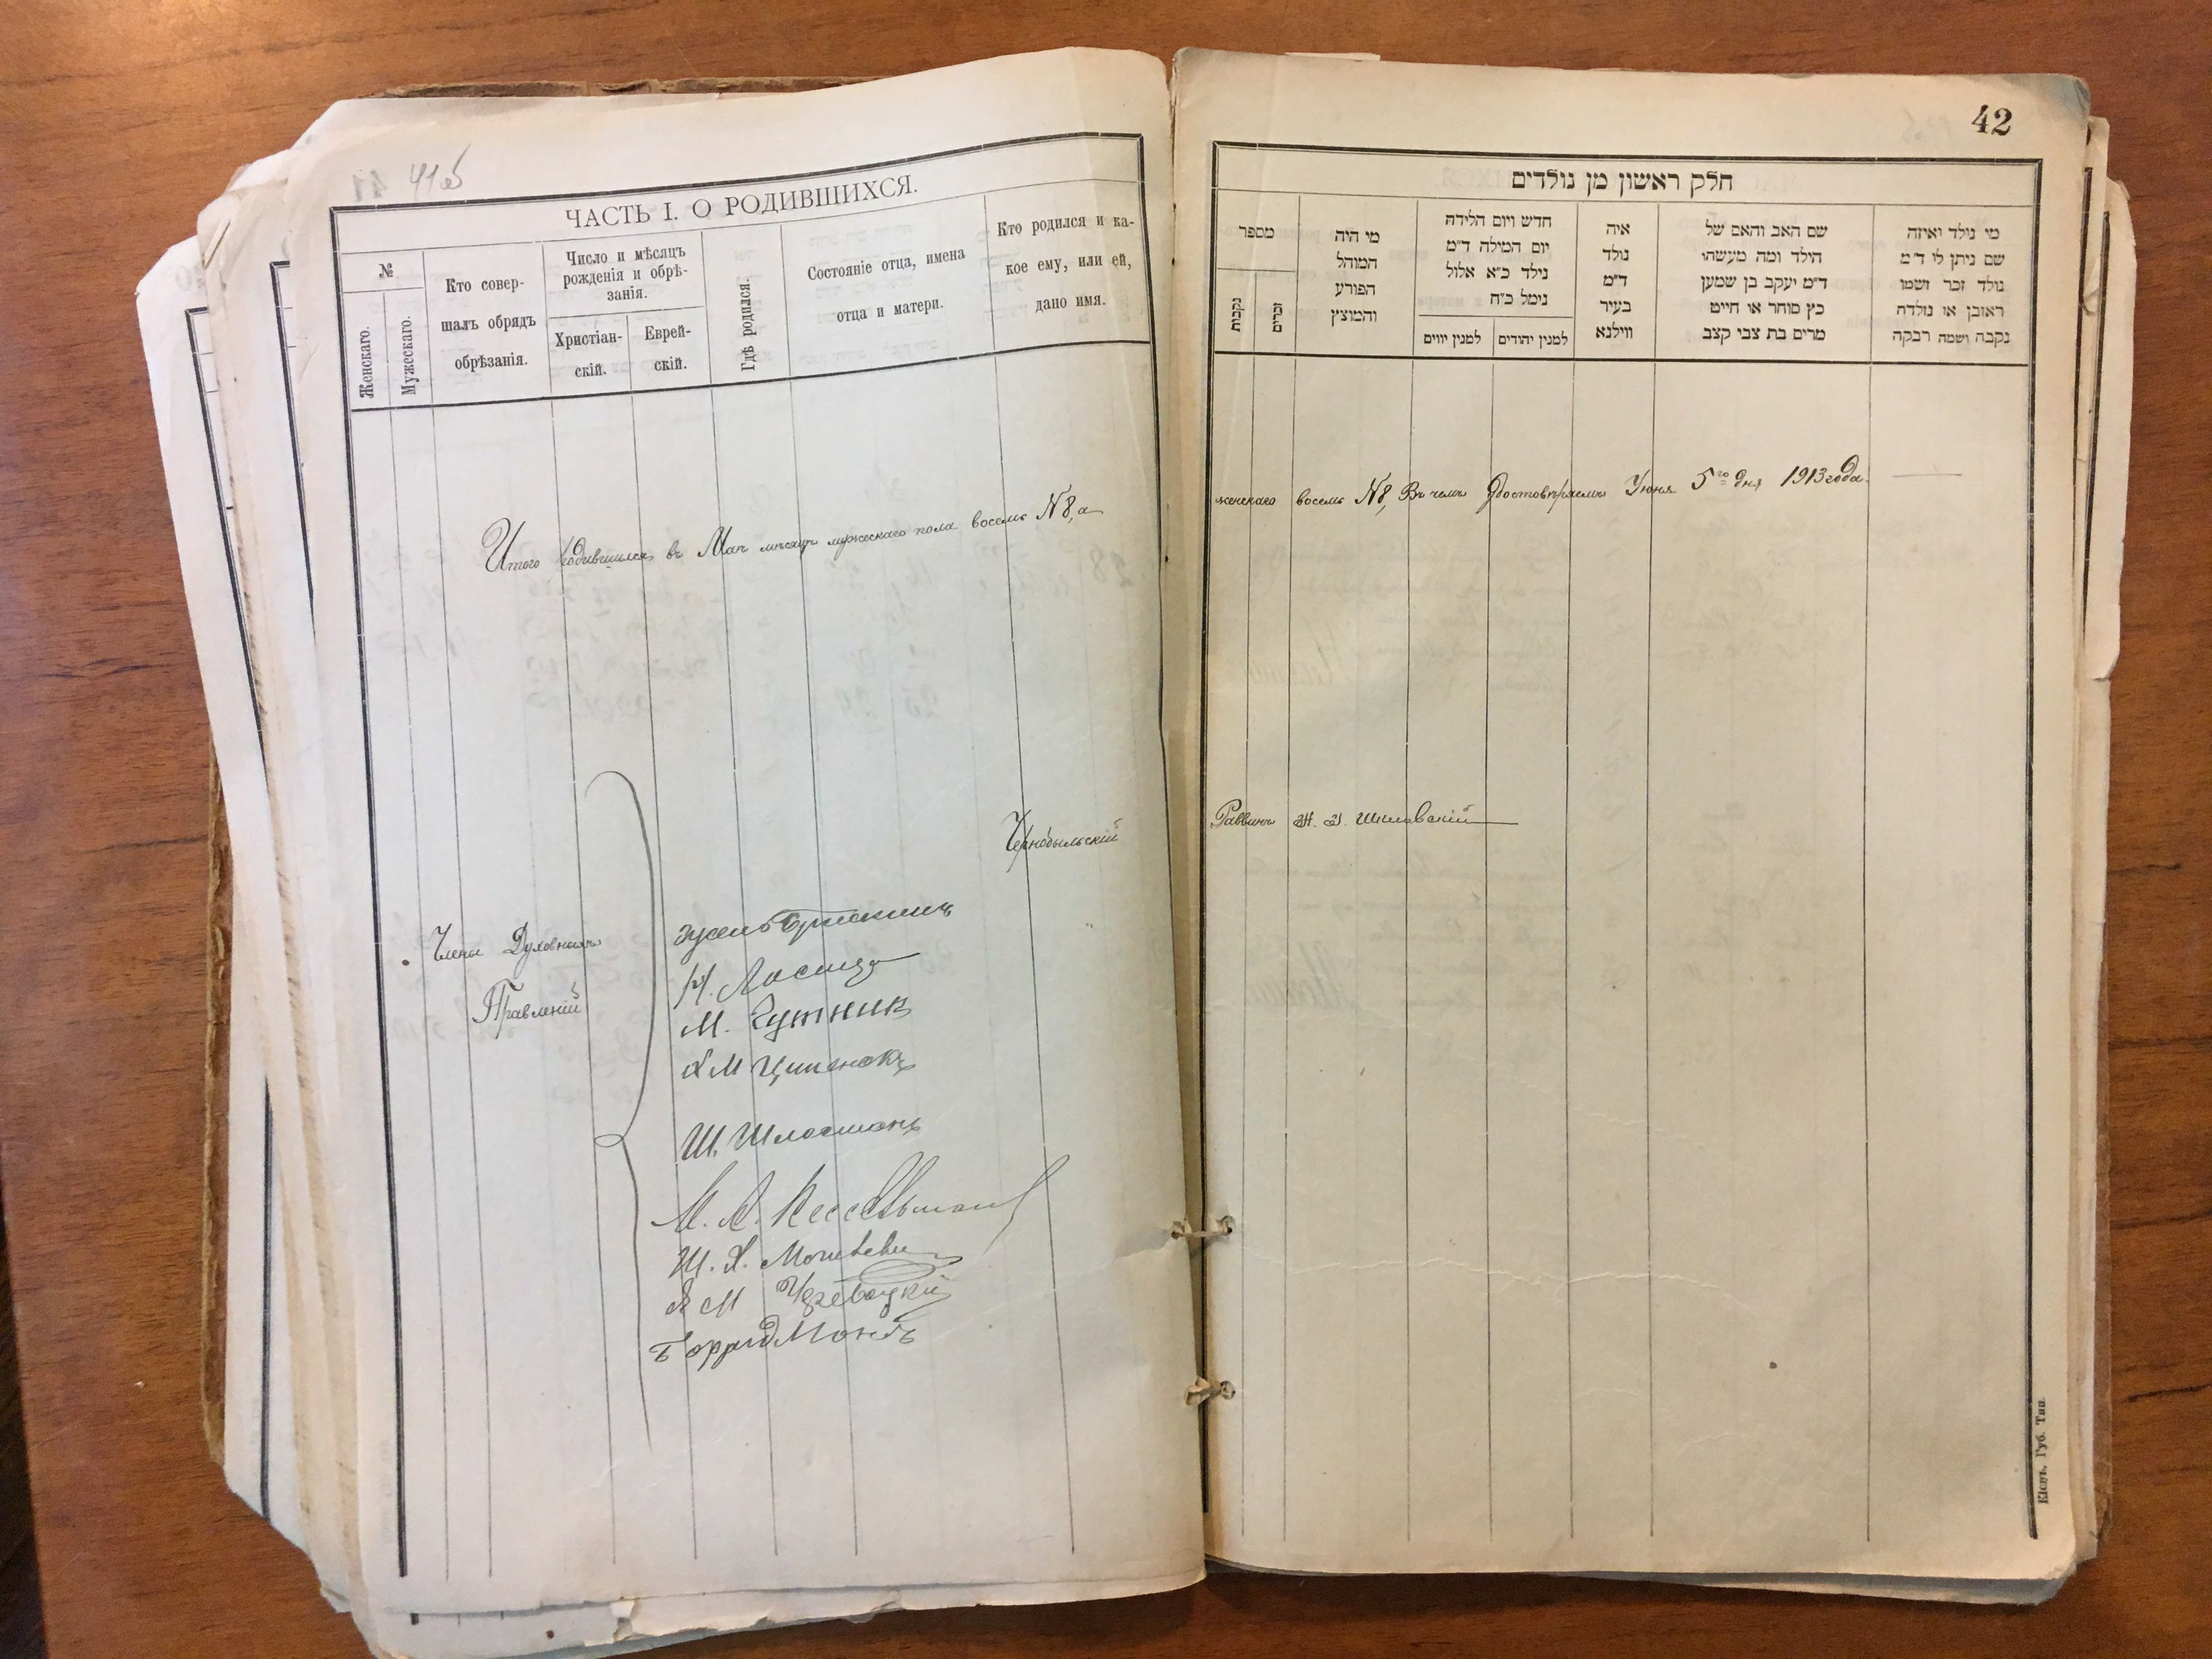 41об
ЧАСТЬ I. О РОДИВШИХСЯ.
№
Женскаго.
Мужескаго.
Кто совер-
шалъ обрядъ
обрѣзанія.
Число и мѣсяцъ
рожденія и обрѣ-
занія.
Христіан-
скій.
Еврей-
скій.
Гдѣ родился.
Состояніе отца, имена
отца и матери.
Кто родился и ка-
кое ему, или ей,
дано имя.
Итого родившихся въ Маѣ мѣсяцѣ мужескаго пола восемь №8, а
Чернобыльскій
Члены Духовныхъ
Правленій
М. Гутник
Ш. Шлосманъ
42
חלק ראשון מן נולדים
מספר
נקבות
זכרים
מי היה
המוהל
הפורע
והמוצץ
חדש ויום הלידה
יום המילה ד״מ
נילד כ״א אלול
נימל כ״ח
למנין יווים
למנין יהודים
איה
נולד
ד״מ
בעיר
ווילנא
שם האב והאם של
הילד ומה מעשהו
ד״מ יעקב בן שמען
כץ סוחר או חייט
מרים בת צבי קצב
מי נולד ואיזה
שם ניתן לו ד״מ
נולד זכר ושמו
ראובן או נולדה
נקבה ושמה רבקה
женскаго восемь №8, Въ чемъ удостовѣряемъ Іюня 5го дня 1913 года.
Раввинъ
Кіевъ, Губ. Тип.